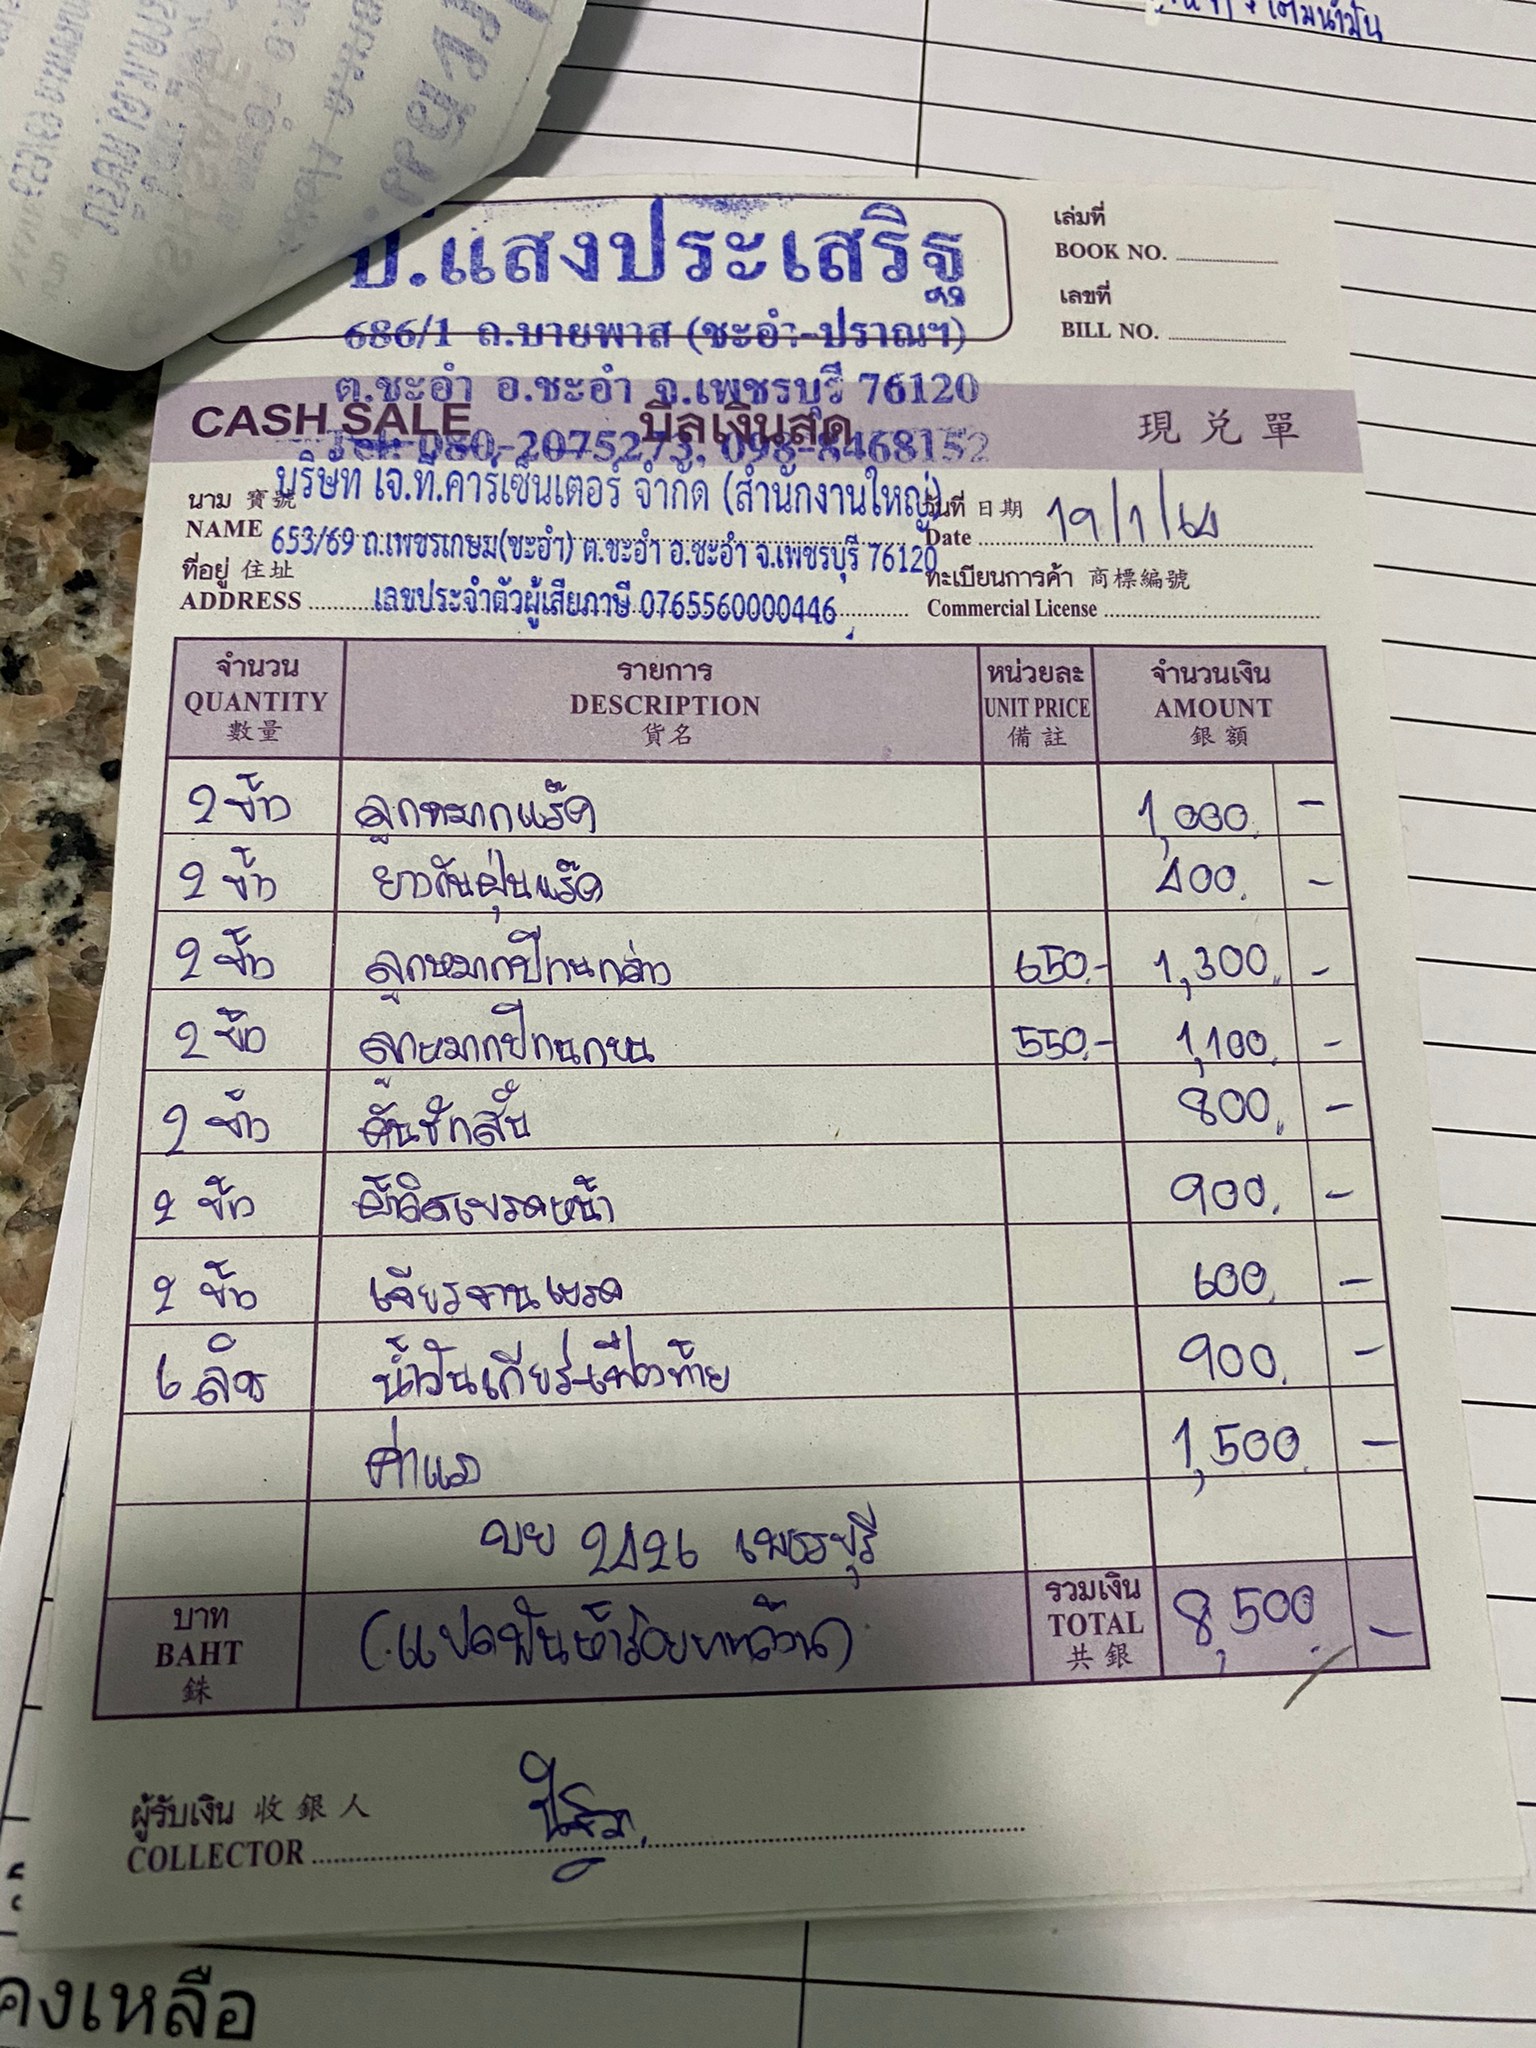 เติมน้ำมัน
ป.แสงประเสริฐ
686/1 ถ.บายพาส (ชะอำ-ปราณฯ)
ต.ชะอำ อ.ชะอำ จ.เพชรบุรี 76120
Tel: 080-2075273, 098-8468152
เล่มที่
BOOK NO.
เลขที่
BILL NO.
CASH SALE บิลเงินสด 現兌單
บริษัท เจ.ที.คาร์เซ็นเตอร์ จำกัด (สำนักงานใหญ่)
653/69 ถ.เพชรเกษม(ชะอำ) ต.ชะอำ อ.ชะอำ จ.เพชรบุรี 76120
เลขประจำตัวผู้เสียภาษี 0765560000446
นาม 寶號
NAME
วันที่ 日期
Date 19/1/64
ที่อยู่ 住址
ADDRESS
ทะเบียนการค้า 商標編號
Commercial License
จำนวน รายการ หน่วยละ จำนวนเงิน
QUANTITY DESCRIPTION UNIT PRICE AMOUNT
數量 貨名 備註 銀額
2 ข้าง ลูกหมากแร็ค 1,000. -
2 ข้าง ยางกันฝุ่นแร็ค 400. -
2 ข้าง ลูกหมากปีกนกล่าง 650.- 1,300. -
2 ข้าง ลูกหมากปีกนกบน 550.- 1,100. -
2 ข้าง คันชักสั้น 800. -
2 ข้าง ผ้าดิสเบรคหน้า 900. -
2 ข้าง เจียรจานเบรค 600. -
6 ลิตร น้ำมันเกียร์-เฟืองท้าย 900. -
ค่าแรง 1,500. -
บย 2426 เพชรบุรี
บาท
BAHT
銖
(แปดพันห้าร้อยบาทถ้วน)
รวมเงิน
TOTAL
共銀
8,500. -
ผู้รับเงิน 收銀人
COLLECTOR
คงเหลือ